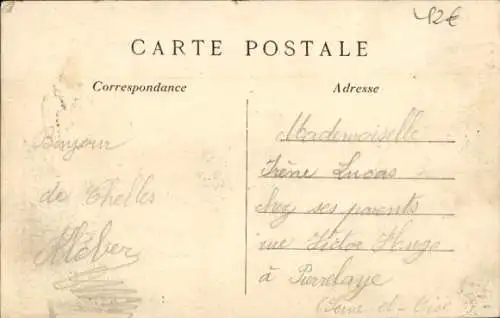 42€
CARTE POSTALE
Correspondance
Adresse
Bonjour
de Chelles
Kléber
Mademoiselle
Irène Lucas
chez ses parents
rue Victor Hugo
à Pierrelaye
(Seine-et-Oise)